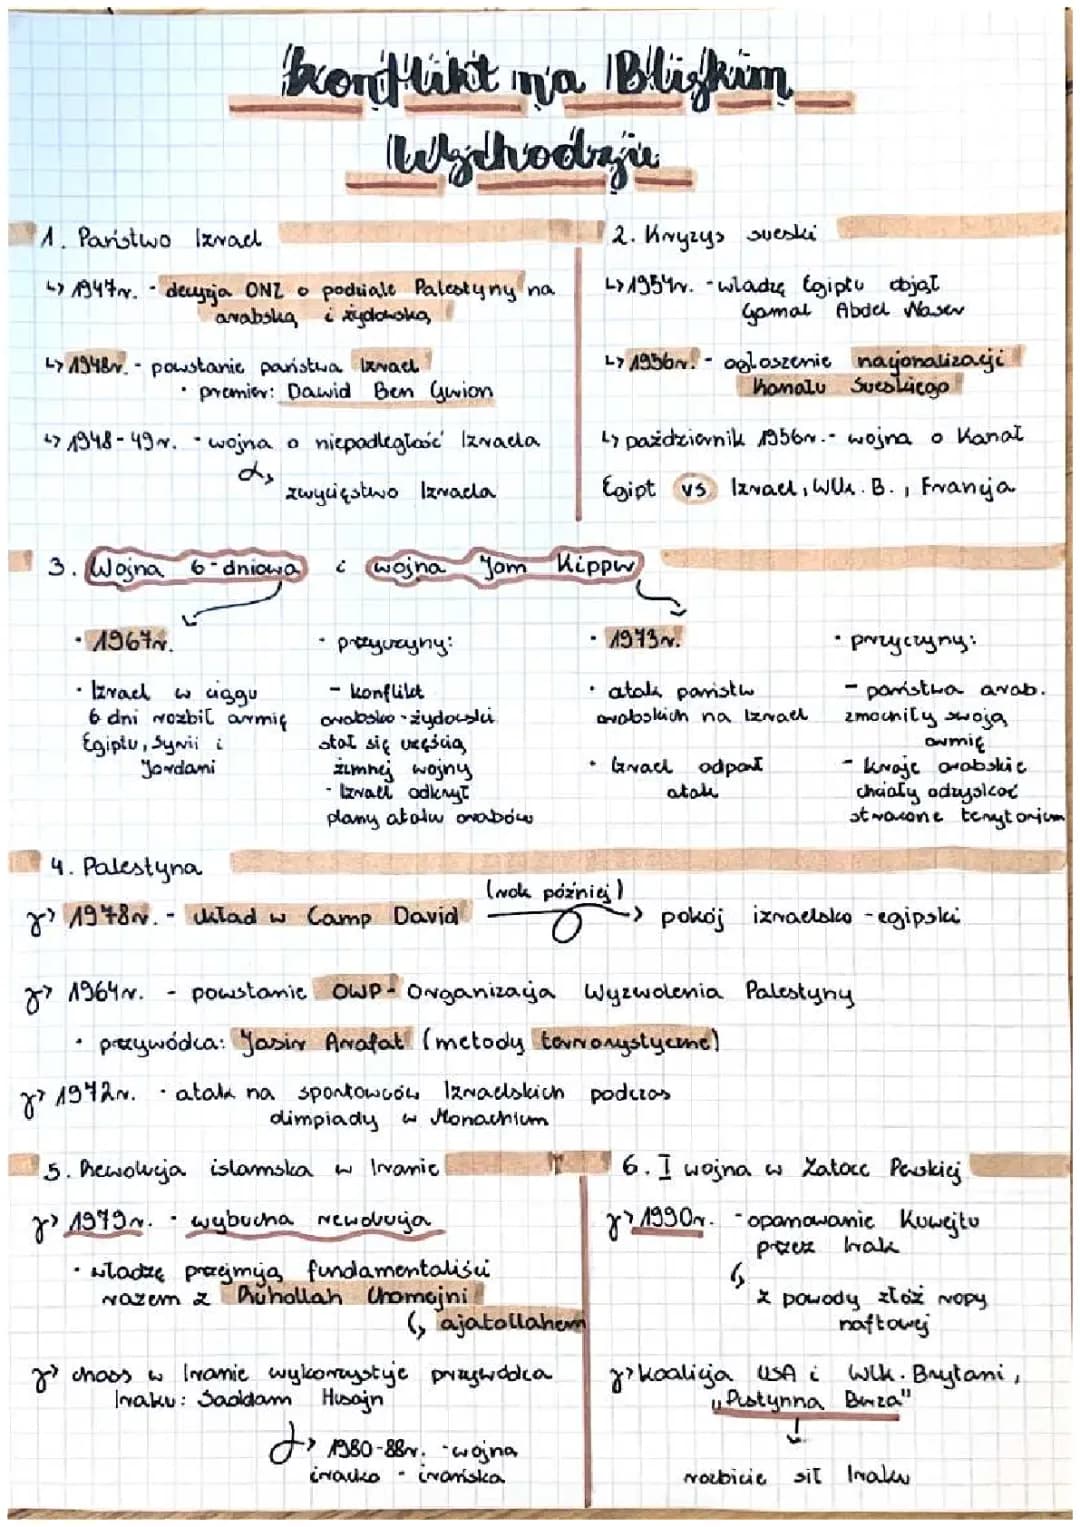 konflikt na Bliskim
Wschodzie
1. Państwo Izrael
↳ 1947r. - decyzja ONZ o podziale Palestyny na
arabską i żydowską
↳ 1948r. - powstanie państwa Izrael
• premier: Dawid Ben Gurion
↳ 1948-49r. - wojna o niepodległość Izraela
↳
zwycięstwo Izraela
2. Kryzys sueski
↳ 1954r. - władzę Egiptu objął
Gamal Abdel Naser
↳ 1956r. - ogłoszenie nacjonalizacji
Kanału Sueskiego
↳ październik 1956r. - wojna o Kanał
Egipt vs Izrael, Wlk. B., Francja
3. Wojna 6-dniowa i wojna Jom Kippur
• 1967r.
• Izrael w ciągu
6 dni rozbił armię
Egiptu, Syrii i
Jordani
• przyczyny:
- konflikt
arabsko-żydowski
stał się częścią
zimnej wojny
- Izrael odkrył
plany ataku arabów
• 1973r.
• atak państw
arabskich na Izrael
• Izrael odparł
atak
• przyczyny:
- państwa arab.
zmocniły swoją
armię
- kraje arabskie
chciały odzyskać
stracone terytorium
4. Palestyna
1978r. - układ w Camp David (rok później) → pokój izraelsko-egipski
1964r. - powstanie OWP - Organizacja Wyzwolenia Palestyny
• przywódca: Jasir Arafat (metody terrorystyczne)
1972r. - atak na sportowców Izraelskich podczas
olimpiady w Monachium
5. Rewolucja islamska w Iranie
1979r. - wybucha rewolucja
• władzę przejmują fundamentaliści
razem z Ruhollah Chomejni
↳ ajatollahem
chaos w Iranie wykorzystuje przywódca
Iraku: Saddam Husajn
1980-88r. - wojna
iracko - irańska
6. I wojna w Zatoce Perskiej
1990r. - opanowanie Kuwejtu
przez Irak
↳
z powody złóż ropy
naftowej
koalicja USA i Wlk. Brytani,
„Pustynna Burza"
↓
rozbicie sił Iraku